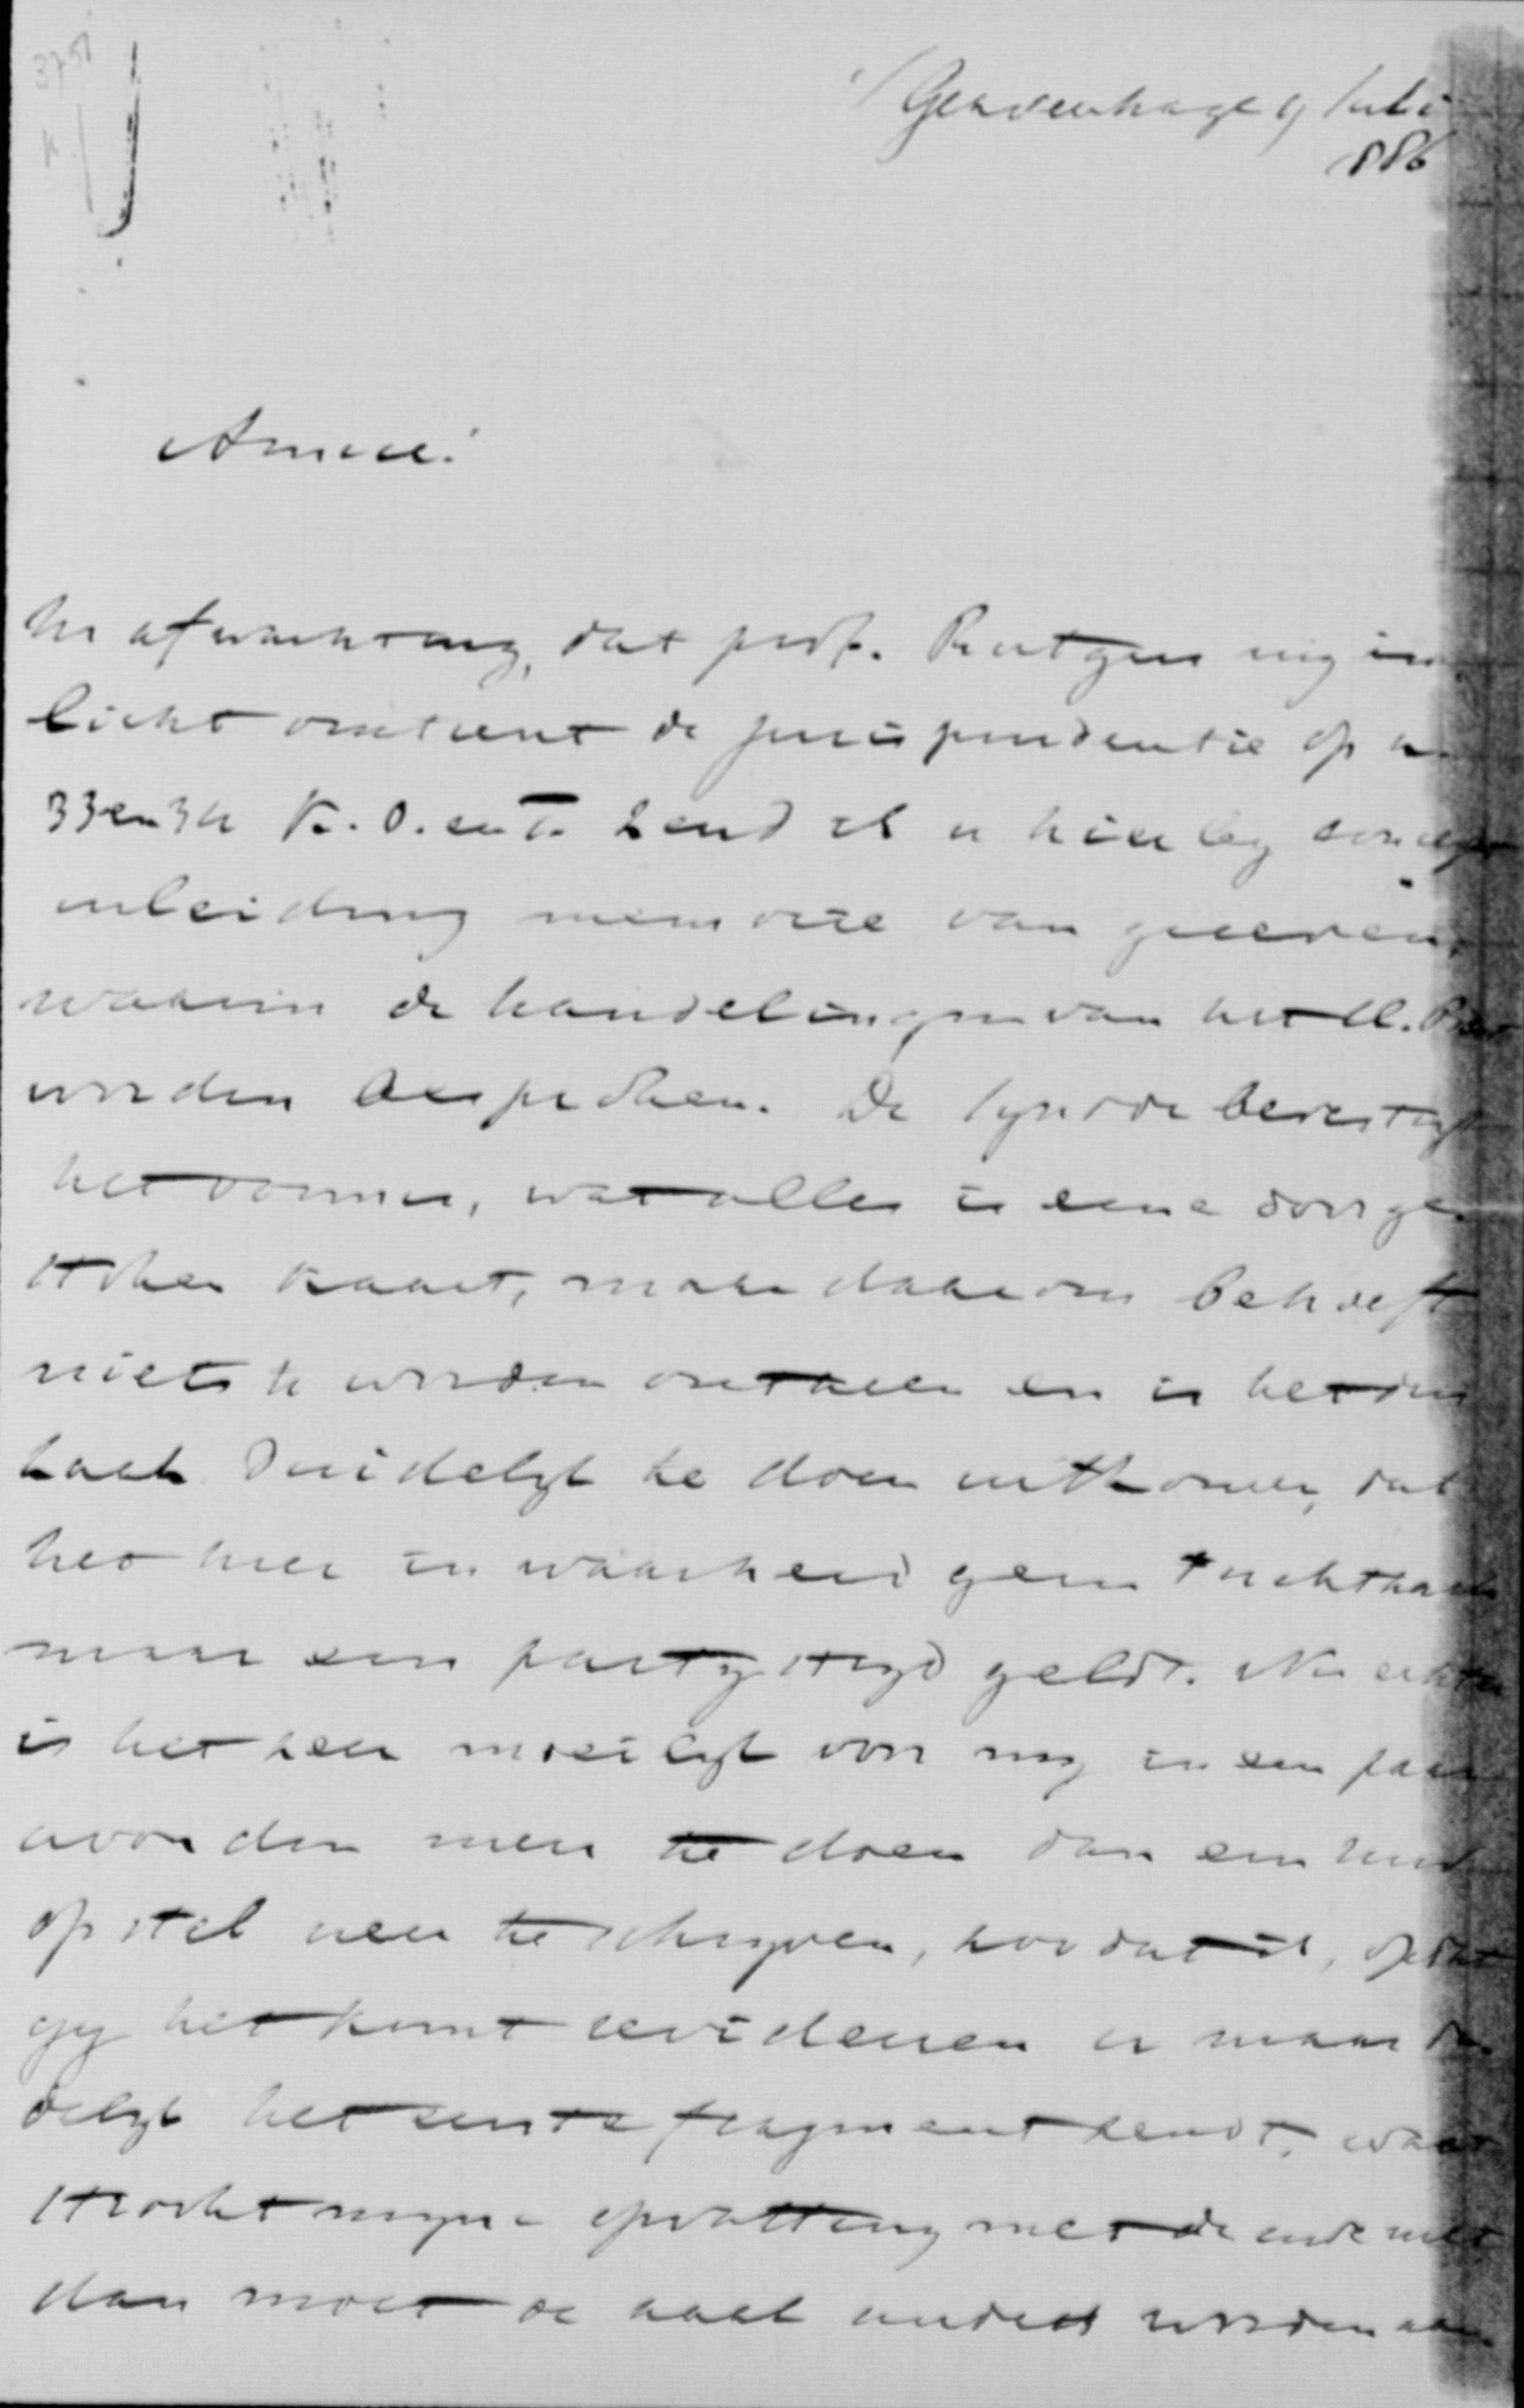 3751
K.
's Gravenhage 9 Juli
1886
Amice!
In afwachting, dat prof. Rutgers mij in
licht omtrent de jurisprudentie op
33 en 34 K.O. zend ik u hierbij concept
inleiding memorie van grieven,
waarin de handelingen van het Cl. Best
worden besproken. De Synode bevestigt
het vonnis, wat alles is eene doorge
stoken kaart, maar daarom behoeft
niets te worden ontzien en is het zeer
zaak duidelijk te doen uitkomen, dat
het hier in waarheid geen tuchtzaak
maar een partijstrijd geldt. Nu echter
is het zeer moeilijk voor mij in een paar
avonden meer te doen dan een
opstel neer te schrijven, zoodat ik, opdat
gij het kunt revideeren u maar da
delijk het eerste fragment zendt, want
strookt mijne opvatting met de uwe niet
dan moet de zaak anders worden aan